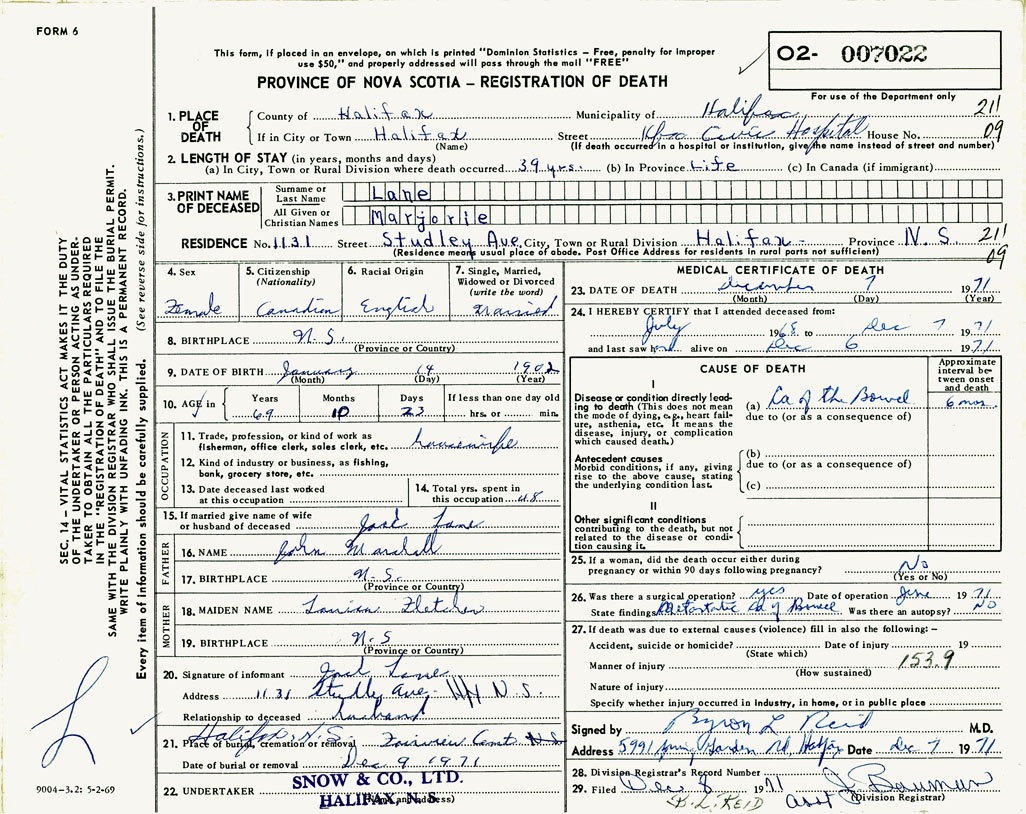 FORM 6
This form, if placed in an envelope, on which is printed "Dominion Statistics – Free, penalty for improper
use $50," and properly addressed will pass through the mail "FREE"
PROVINCE OF NOVA SCOTIA – REGISTRATION OF DEATH
02- 007022
For use of the Department only
1. PLACE OF DEATH
County of Halifax Municipality of Halifax 211
If in City or Town Halifax Street Hfx Civic Hospital House No. 09
(Name) (If death occurred in a hospital or institution, give the name instead of street and number)
2. LENGTH OF STAY (in years, months and days)
(a) In City, Town or Rural Division where death occurred 39 yrs. (b) In Province Life (c) In Canada (if immigrant)
3. PRINT NAME OF DECEASED
Surname or Last Name Lane
All Given or Christian Names Marjorie
RESIDENCE No. 1131 Street Studley Ave. City, Town or Rural Division Halifax - Province N.S. 211
(Residence means usual place of abode. Post Office Address for residents in rural parts not sufficient) 09
4. Sex
Female
5. Citizenship
(Nationality)
Canadian
6. Racial Origin
English
7. Single, Married,
Widowed or Divorced
(write the word)
Married
8. BIRTHPLACE N.S.
(Province or Country)
9. DATE OF BIRTH January 14 1902
(Month) (Day) (Year)
10. AGE in
Years Months Days If less than one day old
69 10 23 hrs. or min.
OCCUPATION
11. Trade, profession, or kind of work as
fisherman, office clerk, sales clerk, etc. housewife
12. Kind of industry or business, as fishing,
bank, grocery store, etc.
13. Date deceased last worked
at this occupation
14. Total yrs. spent in
this occupation 48
15. If married give name of wife
or husband of deceased Lane
FATHER
16. NAME John Marshall
17. BIRTHPLACE N.S.
(Province or Country)
MOTHER
18. MAIDEN NAME Fletcher
19. BIRTHPLACE N.S
(Province or Country)
20. Signature of informant Lane
Address 1131 Studley Ave. N.S.
Relationship to deceased husband
Halifax, N.S.
21. Place of burial, cremation or removal Fairview Cemt. N.S.
Date of burial or removal Dec. 9 1971
22. UNDERTAKER SNOW & CO., LTD.
HALIFAX, N.S.
(Name and address)
MEDICAL CERTIFICATE OF DEATH
23. DATE OF DEATH December 7 1971
(Month) (Day) (Year)
24. I HEREBY CERTIFY that I attended deceased from:
July 1968 to Dec 7 1971
and last saw her alive on Dec 6 1971
CAUSE OF DEATH
Approximate
interval be-
tween onset
and death
I
Disease or condition directly lead-
ing to death (This does not mean
the mode of dying, e.g., heart fail-
ure, asthenia, etc. It means the
disease, injury, or complication
which caused death.)
(a) Ca of the Bowel 6 mos.
due to (or as a consequence of)
Antecedent causes
Morbid conditions, if any, giving
rise to the above cause, stating
the underlying condition last.
(b)
due to (or as a consequence of)
(c)
II
Other significant conditions
contributing to the death, but not
related to the disease or condi-
tion causing it.
25. If a woman, did the death occur either during
pregnancy or within 90 days following pregnancy? No
(Yes or No)
26. Was there a surgical operation? yes Date of operation June 1971
State findings Metastatic Ca of Bowel Was there an autopsy? NO
27. If death was due to external causes (violence) fill in also the following: –
Accident, suicide or homicide? Date of injury 19
(State which)
Manner of injury 153.9
(How sustained)
Nature of injury
Specify whether injury occurred in industry, in home, or in public place
Signed by Byron L Reid M.D.
Address 5991 Spring Garden Rd Halifax Date Dec 7 1971
28. Division Registrar's Record Number
29. Filed Dec 8 1971
(Division Registrar)
B.L. REID asst
SEC. 14 – VITAL STATISTICS ACT MAKES IT THE DUTY
OF THE UNDERTAKER OR PERSON ACTING AS UNDER-
TAKER TO OBTAIN ALL THE PARTICULARS REQUIRED
IN THE "REGISTRATION OF DEATH" AND TO FILE THE
SAME WITH THE DIVISION REGISTRAR WHO SHALL ISSUE THE BURIAL PERMIT.
WRITE PLAINLY WITH UNFADING INK. THIS IS A PERMANENT RECORD.
Every item of information should be carefully supplied. (See reverse side for instructions.)
9004–3.2: 5-2-69